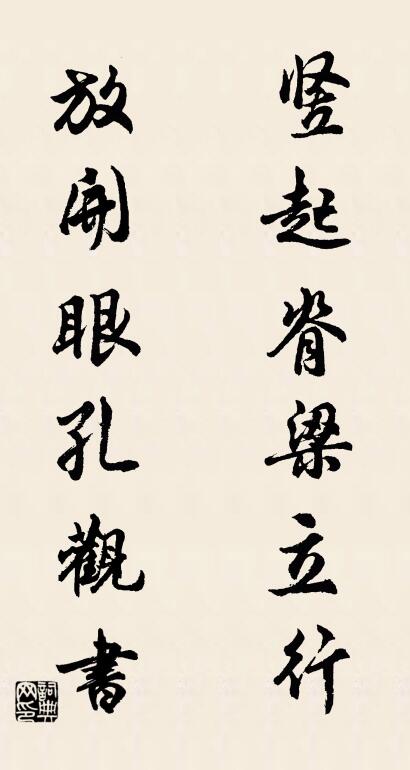 竖起脊梁立行
放開眼孔觀書
詞典网印